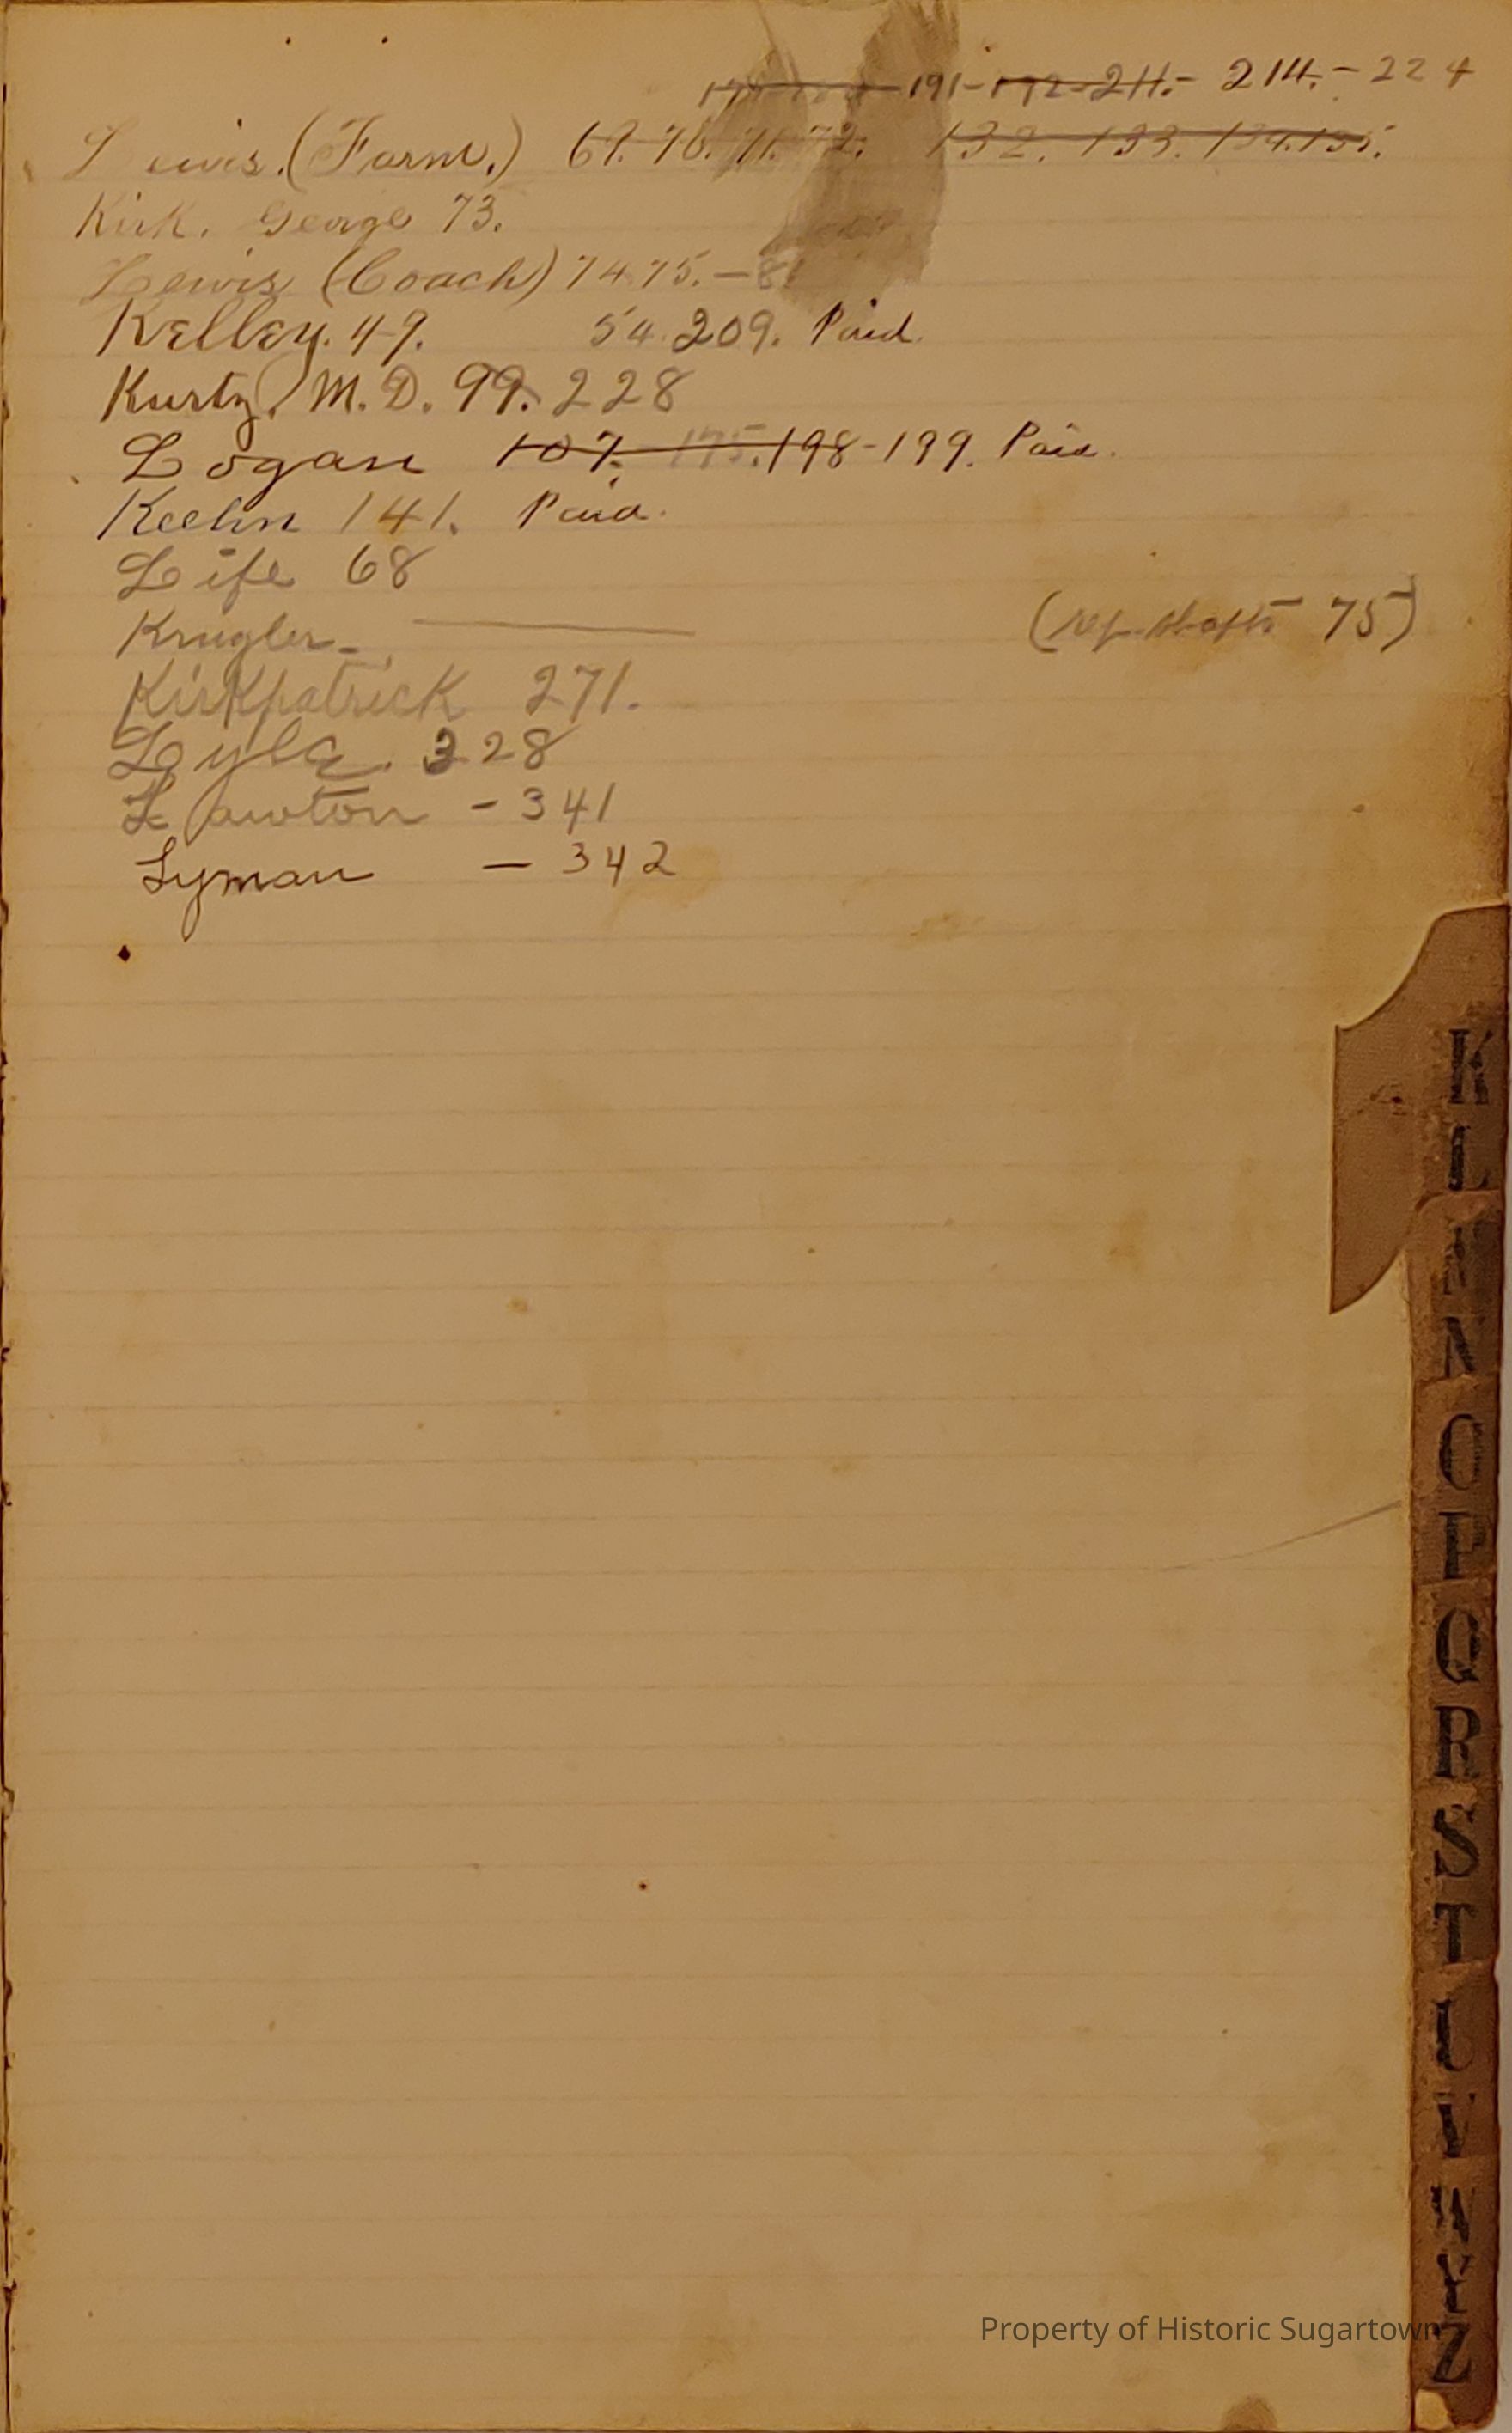 191-192-211.- 214.-224
Lewis.(Farm.) 69.70.71.72. 132.133.134.135.
Kirk. George 73.
Lewis (Coach) 74.75.-81
Kelley. 49. 54.209. Paid.
Kurtz, M.D. 99.228
Logan 107. 175.198-199. Paid.
Keehn 141. Paid.
Life 68
Krugler-
(rep. shafts 75)
Kirkpatrick 271.
Lyle. 328
Lawton - 341
Lyman - 342
K
L
M
N
O
P
Q
R
S
T
U
V
W
Y
Z
Property of Historic Sugartown